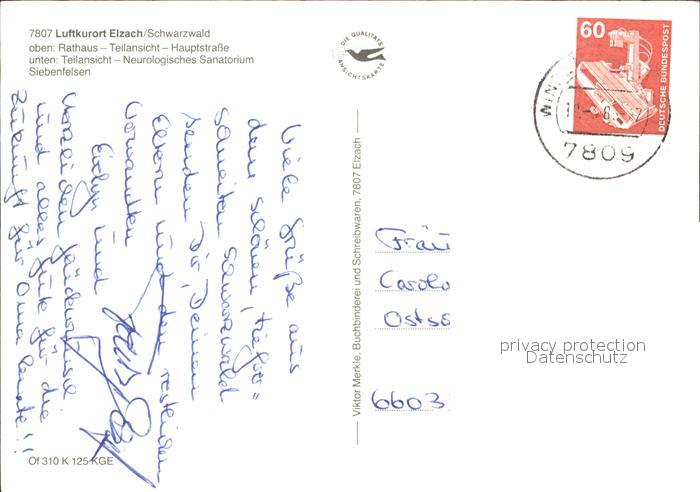 7807 Luftkurort Elzach/Schwarzwald
oben: Rathaus – Teilansicht – Hauptstraße
unten: Teilansicht – Neurologisches Sanatorium
Siebenfelsen
DIE QUALITÄTS
ANSICHTSKARTE
60
DEUTSCHE BUNDESPOST
WIN
7809
Viele Grüße aus
dem schönen,
Schwarzwald
senden Dir, Deinen
Eltern und den restlichen
Verwandten
Evelyn und
Herzlichen Glückwunsch
und alles Gute für die
Zukunft für Oma !!
Viktor Merkle, Buchbinderei und Schreibwaren, 7807 Elzach
Fräu
Carolo
Ostso
6603
privacy protection
Datenschutz
Of 310 K 125 KGE